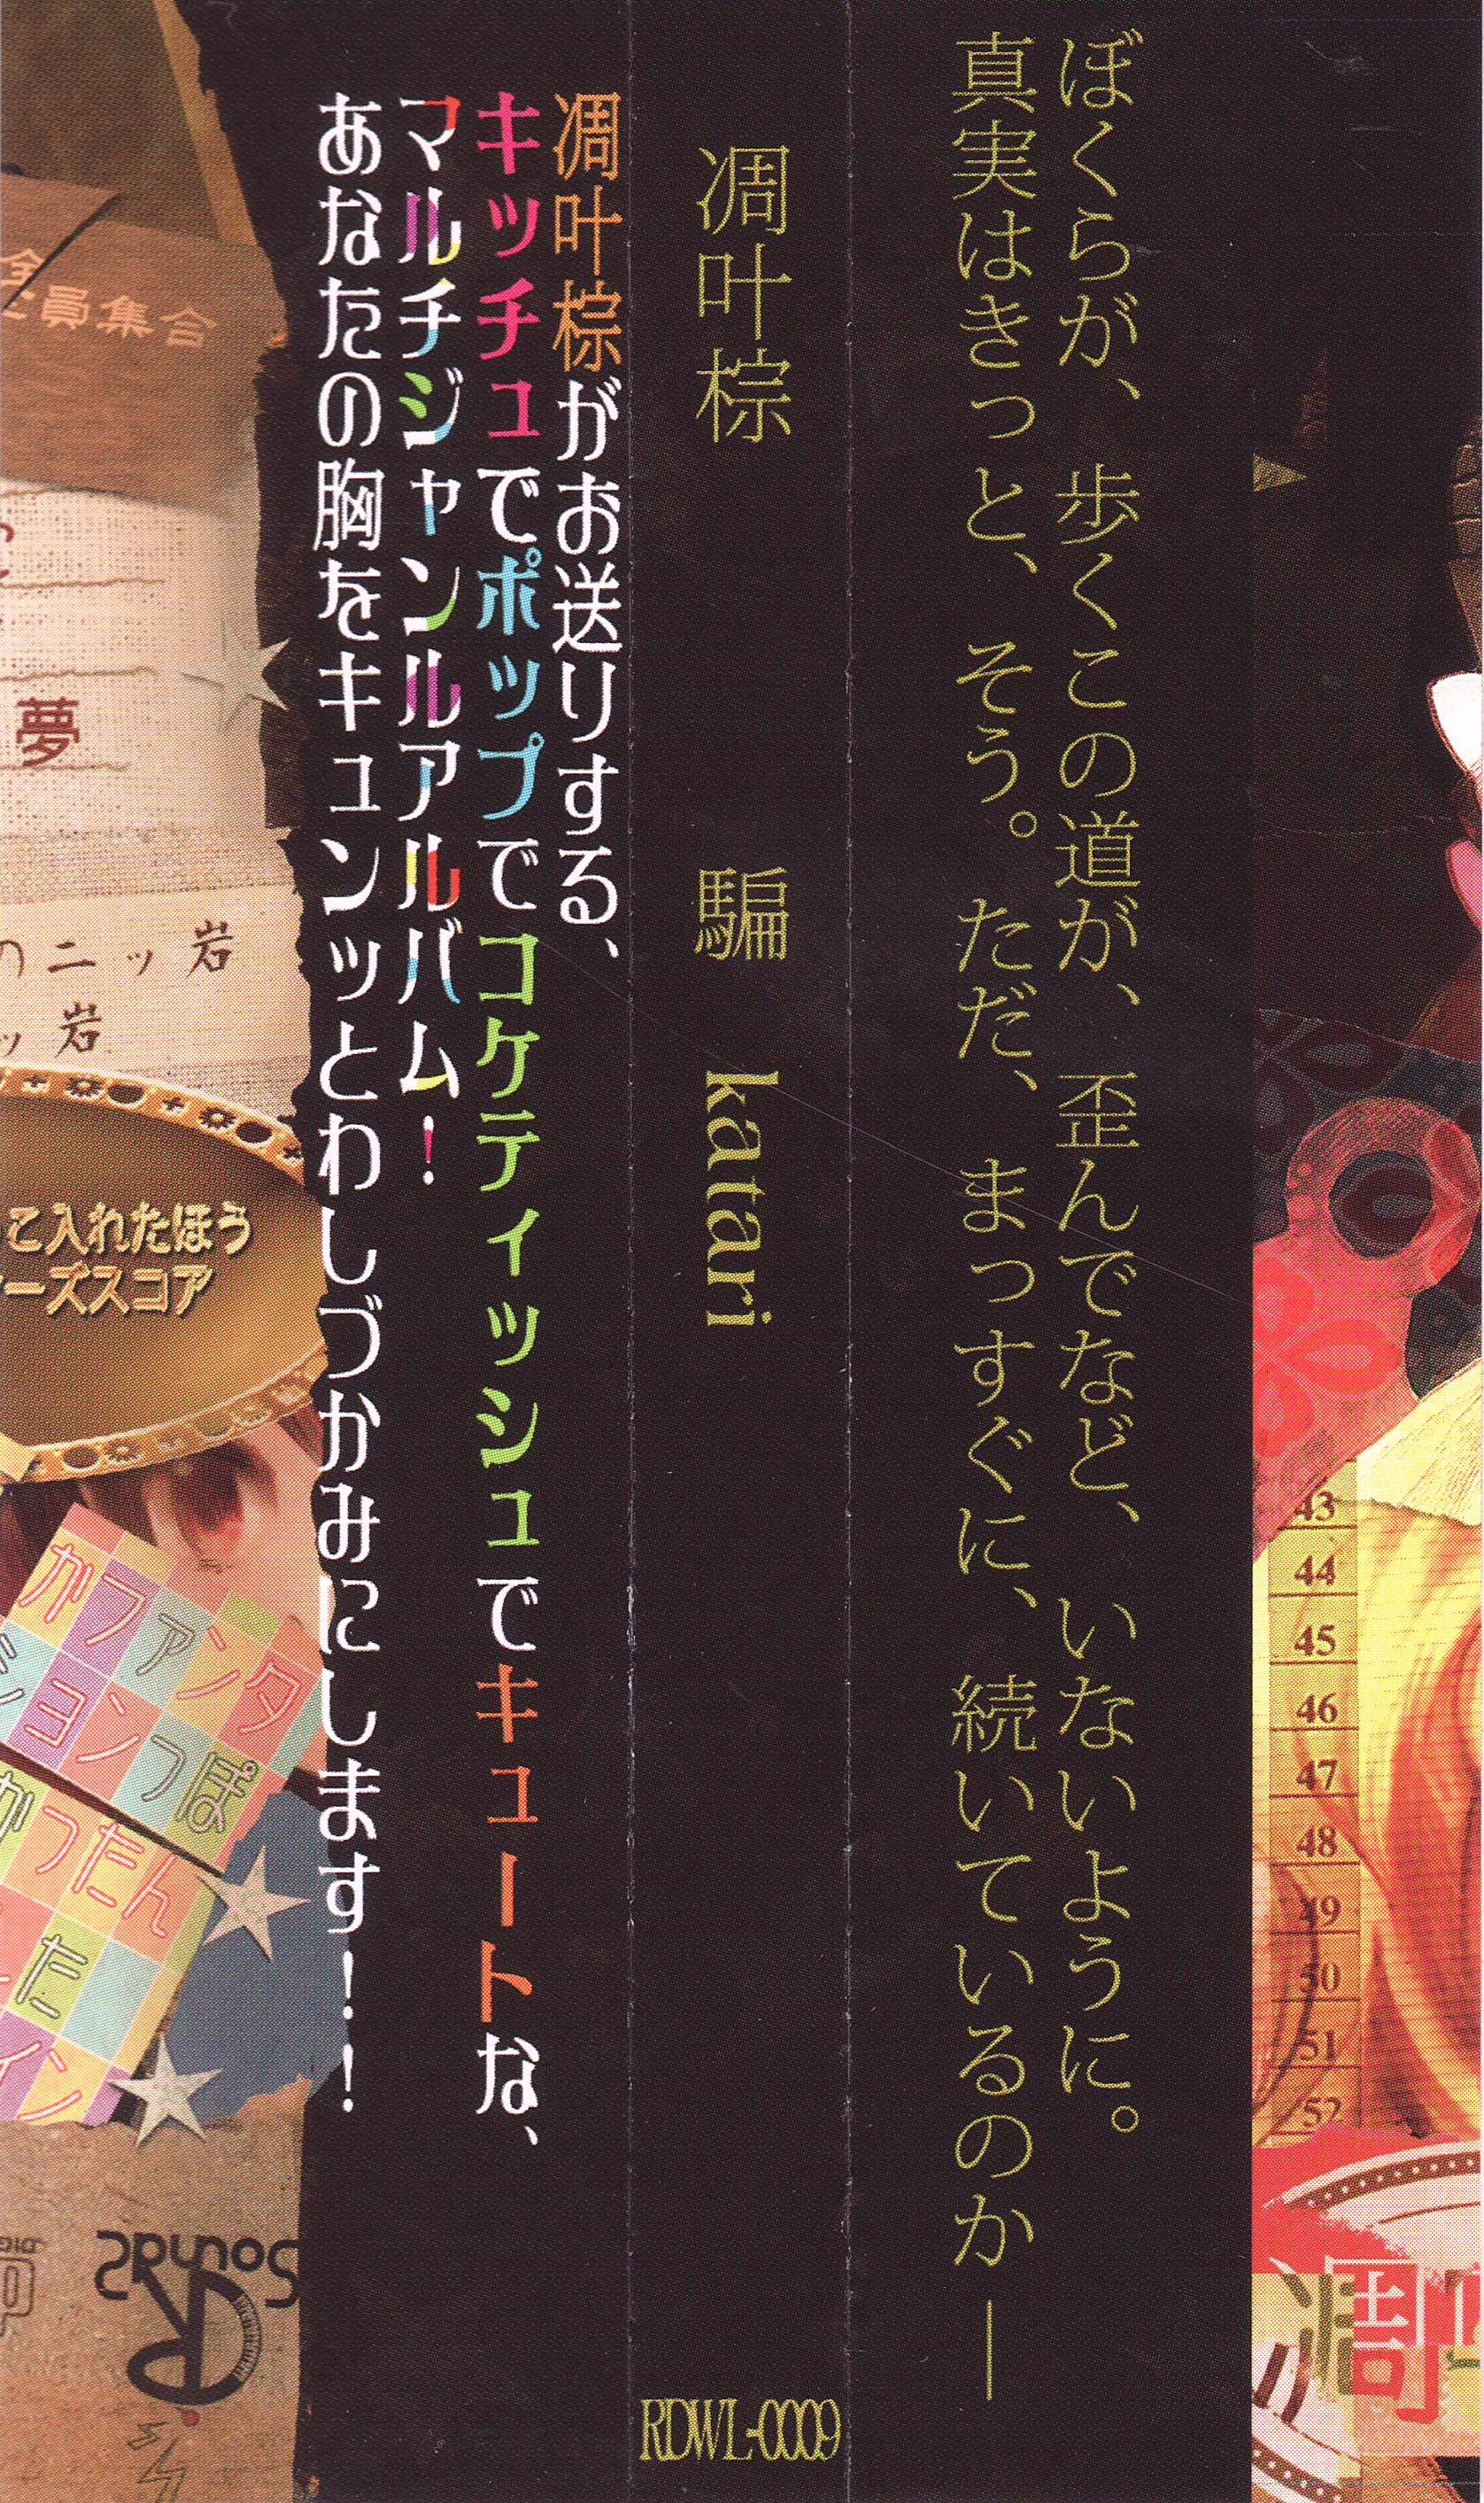 ぼくらが、歩くこの道が、歪んでなど、いないように。
真実はきっと、そう。ただ、まっすぐに、続いているのか―
凋叶棕
騙 katari
RDWL-0009
凋叶棕がお送りする、
キッチュでポップでコケティッシュでキュートな、
マルチジャンルアルバム!
あなたの胸をキュンッとわしづかみにします!!
全員集合
夢
のニッ岩
ッ岩
こ入れたほう
ーズスコア
かファンタ
ジョンつぽ
かつたん
た
イン
Sounds
43
44
45
46
47
48
49
50
51
52
凋